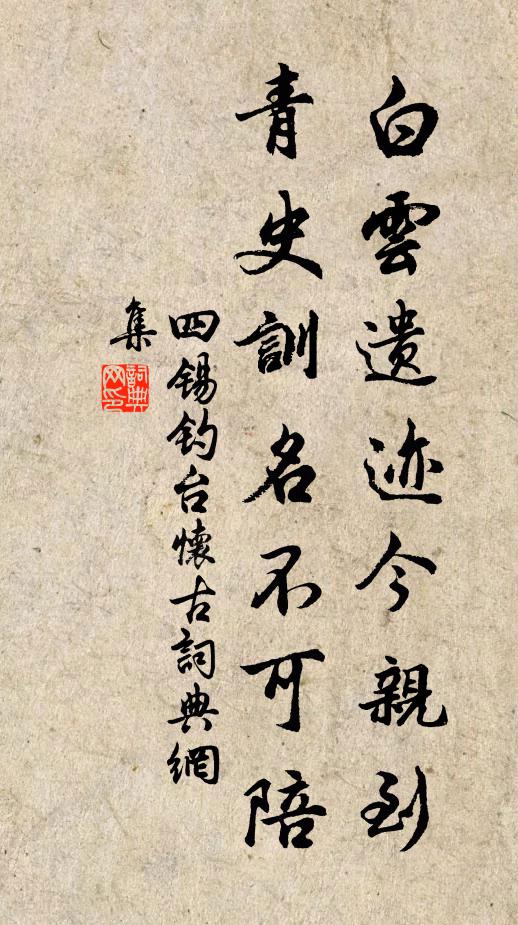 白雲遗迹今親到
青史訓名不可陪
四锡钓台懷古詞典網
集
詞典
网印